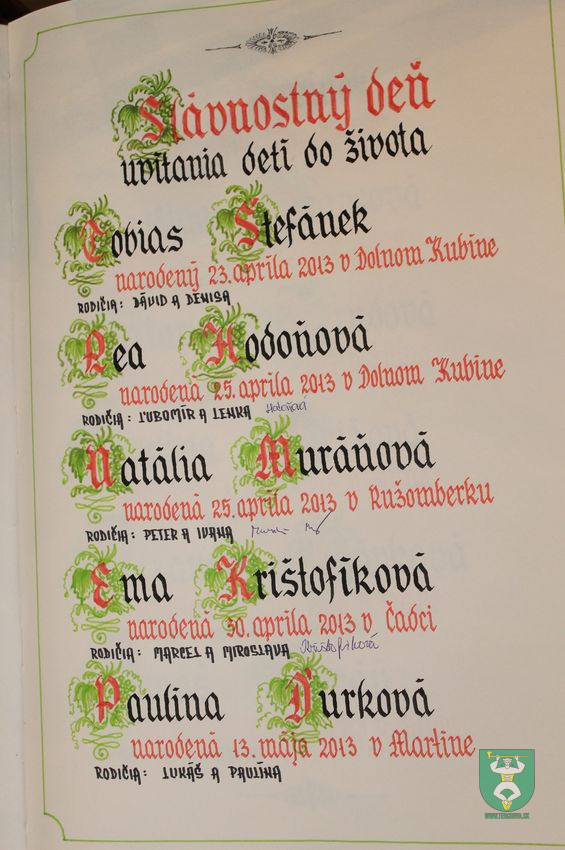 Slávnostný deň
uvítania detí do života
Tobias Štefánek
narodený 23. apríla 2013 v Dolnom Kubíne
RODIČIA: DÁVID A DENISA
Lea Hodoňová
narodená 25. apríla 2013 v Dolnom Kubíne
RODIČIA: ĽUBOMÍR A LENKA Hodoňová
Natália Muráňová
narodená 25. apríla 2013 v Ružomberku
RODIČIA: PETER A IVANA
Ema Krištofíková
narodená 30. apríla 2013 v Čadci
RODIČIA: MARCEL A MIROSLAVA Krištofíková
Paulína Ďurková
narodená 13. mája 2013 v Martine
RODIČIA: LUKÁŠ A PAULÍNA
WWW.TERCHOVA.SK